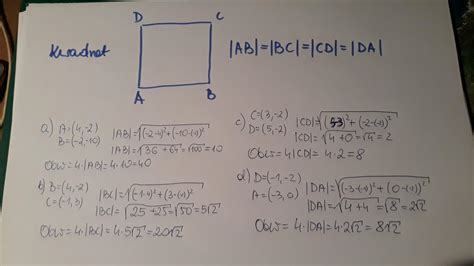 D C
Kwadrat
|AB|=|BC|=|CD|=|DA|
A B
a) A=(4,-2)
B=(-2,-10)
|AB|=√(-2-4)²+(-10-(-2))²
|AB|=√36+64=√100=10
Obw=4·|AB|=4·10=40
b) B=(4,-2)
C=(-1,3)
|BC|=√(-1-4)²+(3-(-2))²
|BC|=√25+25=√50=5√2
Obw=4·|BC|=4·5√2=20√2
c) C=(3,-2)
D=(5,-2)
|CD|=√(5-3)²+(-2-(-2))²
|CD|=√4+0=√4=2
Obw=4·|CD|=4·2=8
d) D=(-1,-2)
A=(-3,0)
|DA|=√(-3-(-1))²+(0-(-2))²
|DA|=√4+4=√8=2√2
Obw=4·|DA|=4·2√2=8√2